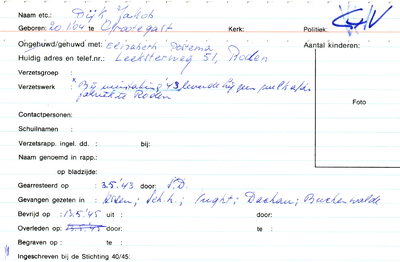 Naam etc.: Dijk, Jakob
Geboren: 20.1.04 te Grootegast Kerk: Politiek: CHV
Ongehuwd/gehuwd met: Elizabeth Postema Aantal kinderen:
Huidig adres en telef.nr.: Leeksterweg 51, Roden
Verzetsgroep :
Verzetswerk : Bij meistaking '43 leverde hij geen melk a/d
fabriek te Roden
Foto
Contactpersonen:
Schuilnaam :
Verzetsrapp. ingel. dd. : bij:
Naam genoemd in rapp.:
op bladzijde:
Gearresteerd op : 3.5.'43 door: S.D.
Gevangen gezeten in : Assen; Sch.h.; Vught; Dachau; Buchenwalde
Bevrijd op : 13.5.'45 uit : door:
Overleden op: 13.5.'45 door: te :
Begraven op : te :
Ingeschreven bij de Stichting 40/45: